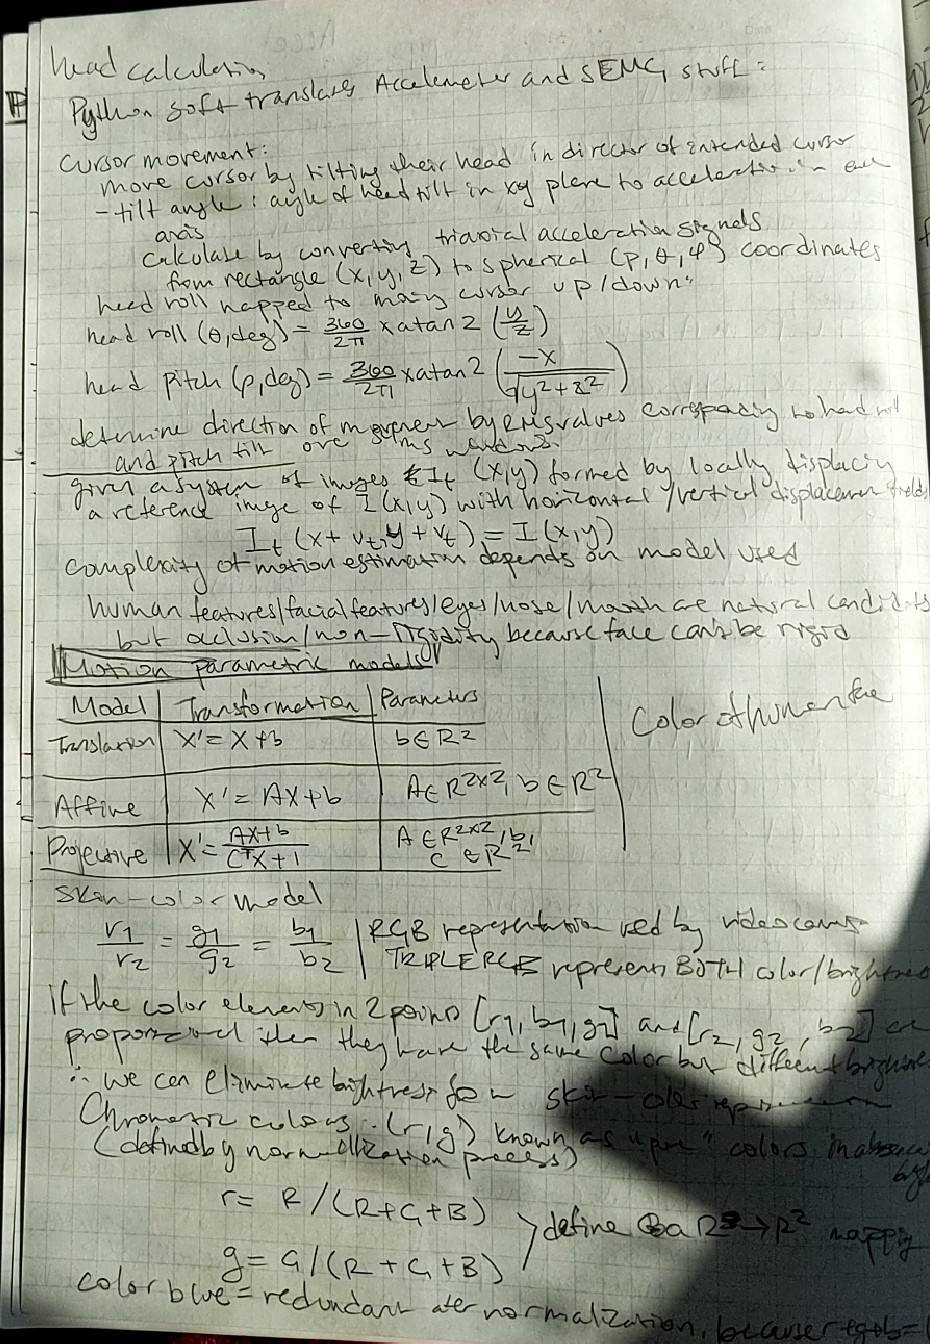 head calculation
Python soft translates Accelemeter and SEMG stuff:
Cursor movement:
move cursor by tilting their head in director of intended cursor
- tilt angle: angle of head tilt in xy plane to acceleration in each
axis
calculate by converting triaxial acceleration signals
from rectangle (x, y, z) to spherical (ρ, θ, φ) coordinates
head roll mapped to moving cursor up/down"
head roll (θ, deg) = 360/2π x atan2 (y/z)
head pitch (ρ, deg) = 360/2π x atan2 (-x/√y²+z²)
determine direction of movement by RMS values corresponding to head roll
and pitch tilt over ms windows.
given a system of images It (x,y) formed by locally displacing
a reference image of I(x,y) with horizontal/vertical displacement fields
It (x + ut, y + vt) = I(x,y)
Complexity of motion estimation depends on model used
human features/facial features/eyes/nose/mouth are natural candidates
but occlusion/non-rigidity because face can't be rigid
Motion parametric models
Model | Transformation | Parameters
Translation | X' = X + b | b ∈ R2
Affine | X' = AX + b | A ∈ R2x2, b ∈ R2
Projective | X' = AX+b / CTX+1 | A ∈ R2x2, b, C ∈ R2
Color of human face
Skin-color model
r1/r2 = g1/g2 = b1/b2 | RGB representation used by videocams
TRIPLE RGB represents BOTH color/brightness
If the color elements in 2 points [r1, b1, g1] and [r2, g2, b2] are
proportional then they have the same color but different brightness
∴ we can eliminate brightness from skin-color representation
Chromatic colors: (r,g) known as "pure" colors in absence
(defined by normalization process)
r = R/(R+G+B)
g = G/(R+G+B)
define a R3→R2 mapping
color blue = redundant after normalization, because r+g+b=1